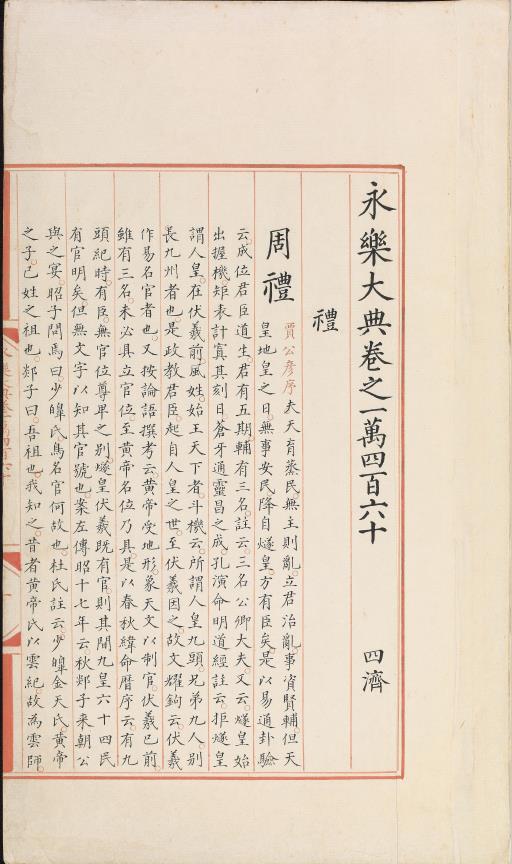 永樂大典卷之一萬四百六十　四濟
禮
周禮
賈公彥序夫天育蒸民無主則亂立君治亂事資賢輔但天
皇地皇之日無事安民降自燧皇方有臣矣是以易通卦驗
云成位君臣道生君有五期輔有三名註云三名公卿大夫又云燧皇始
出握機矩表計寘其刻日蒼牙通靈昌之成孔演命明道經註云拒燧皇
謂人皇在伏羲前風姓始王天下者斗機云所謂人皇九頭兄弟九人別
長九州者也是政教君臣起自人皇之世至伏羲因之故文耀鉤云伏羲
作易名官者也又按論語撰考云黃帝受地形象天文以制官伏羲已前
雖有三名未必具立官位至黃帝名位乃具是以春秋緯命曆序云有九
頭紀時有臣無官位尊卑之別燧皇伏羲既有官則其閒九皇六十四民
有官明矣但無文字以知其官號也案左傳昭十七年云秋郯子來朝公
與之宴昭子問焉曰少皥氏鳥名官何故也杜氏註云少皥金天氏黃帝
之子己姓之祖也郯子曰吾祖也我知之昔者黃帝氏以雲紀故為雲師